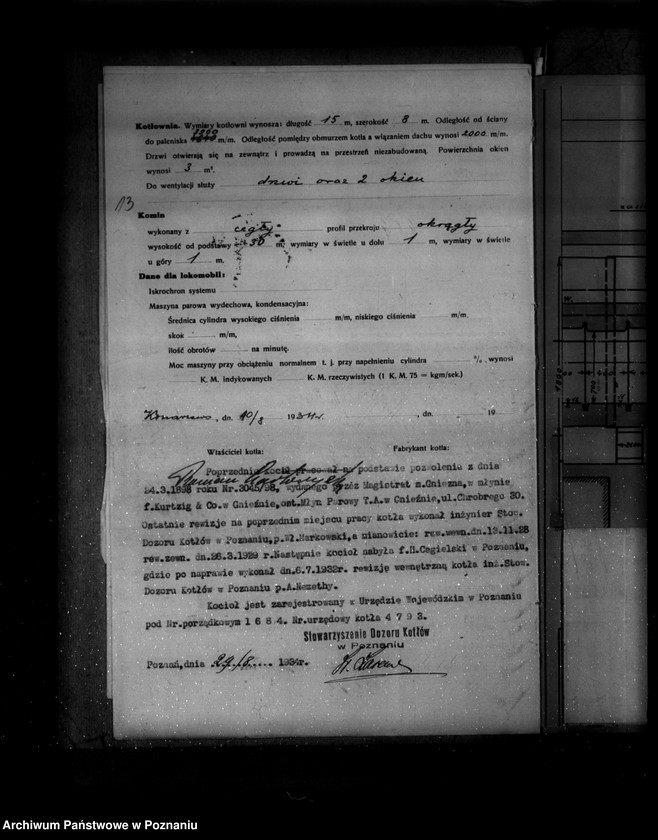 Kotłownia. Wymiary kotłowni wynoszą: długość 15 m, szerokość 8 m. Odległość od ściany
do paleniska m/m. Odległość pomiędzy obmurzem kotła a wiązaniem dachu wynosi 2000 m/m.
Drzwi otwierają się na zewnątrz i prowadzą na przestrzeń niezabudowaną. Powierzchnia okien
wynosi 3 m².
Do wentylacji służy drzwi oraz 2 okien
13
Komin
wykonany z cegły profil przekroju okrągły
wysokość od podstawy 30 m, wymiary w świetle u dołu 1 m, wymiary w świetle
u góry 1 m.
Dane dla lokomobil:
Iskrochron systemu
Maszyna parowa wydechowa, kondensacyjna:
Średnica cylindra wysokiego ciśnienia m/m, niskiego ciśnienia m/m.
skok m/m,
ilość obrotów na minutę.
Moc maszyny przy obciążeniu normalnem t. j. przy napełnieniu cylindra % wynosi
K. M. indykowanych K. M. rzeczywistych (1 K. M. 75 = kgm/sek.)
Konarzewo, dn. 10/8 1934 r. , dn. 19
Właściciel kotła: Fabrykant kotła:
Poprzednio kocioł pracował na podstawie pozwolenia z dnia
24.3.1898 roku Nr.3045/98, wydanego przez Magistrat m.Gniezna, w młynie
f.Kurtzig & Co.w Gnieźnie, ost.Młyn Parowy T.A.w Gnieźnie, ul.Chrobrego 30.
Ostatnie rewizje na poprzednim miejscu pracy kotła wykonał inżynier Stow.
Dozoru Kotłów w Poznaniu, p.Wł.Markowski, a mianowicie: rew.wewn.dn.13.11.28
rew.zewn. dn.26.3.1929 r.Następnie kocioł nabyła f.H.Cegielski w Poznaniu,
gdzie po naprawie wykonał dn.6.7.1932r. rewizję wewnętrzną kotła inż.Stow.
Dozoru Kotłów w Poznaniu p.A.Nezethy.
Kocioł jest zarejestrowany w Urzędzie Wojewódzkim w Poznaniu
pod Nr.porządkowym 1 6 8 4. Nr.urzędowy kotła 4 7 9 3.
Stowarzyszenie Dozoru Kotłów
w Poznaniu
Poznań, dnia 29/8 1934r.
Archiwum Państwowe w Poznaniu